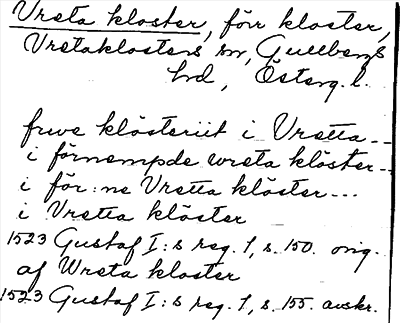 Vreta kloster, förr kloster,
Vretaklosters sn, Gullbergs
hrd, Österg. l.
frwe klösteriit i Vretta --
i förnempde wreta klöster --
i för:ne Vretta klöster ---
i Vretta klöster
1523 Gustaf I:s reg. 1, s. 150. orig.
af Wreta kloster
1523 Gustaf I:s reg. 1, s. 155. avskr.